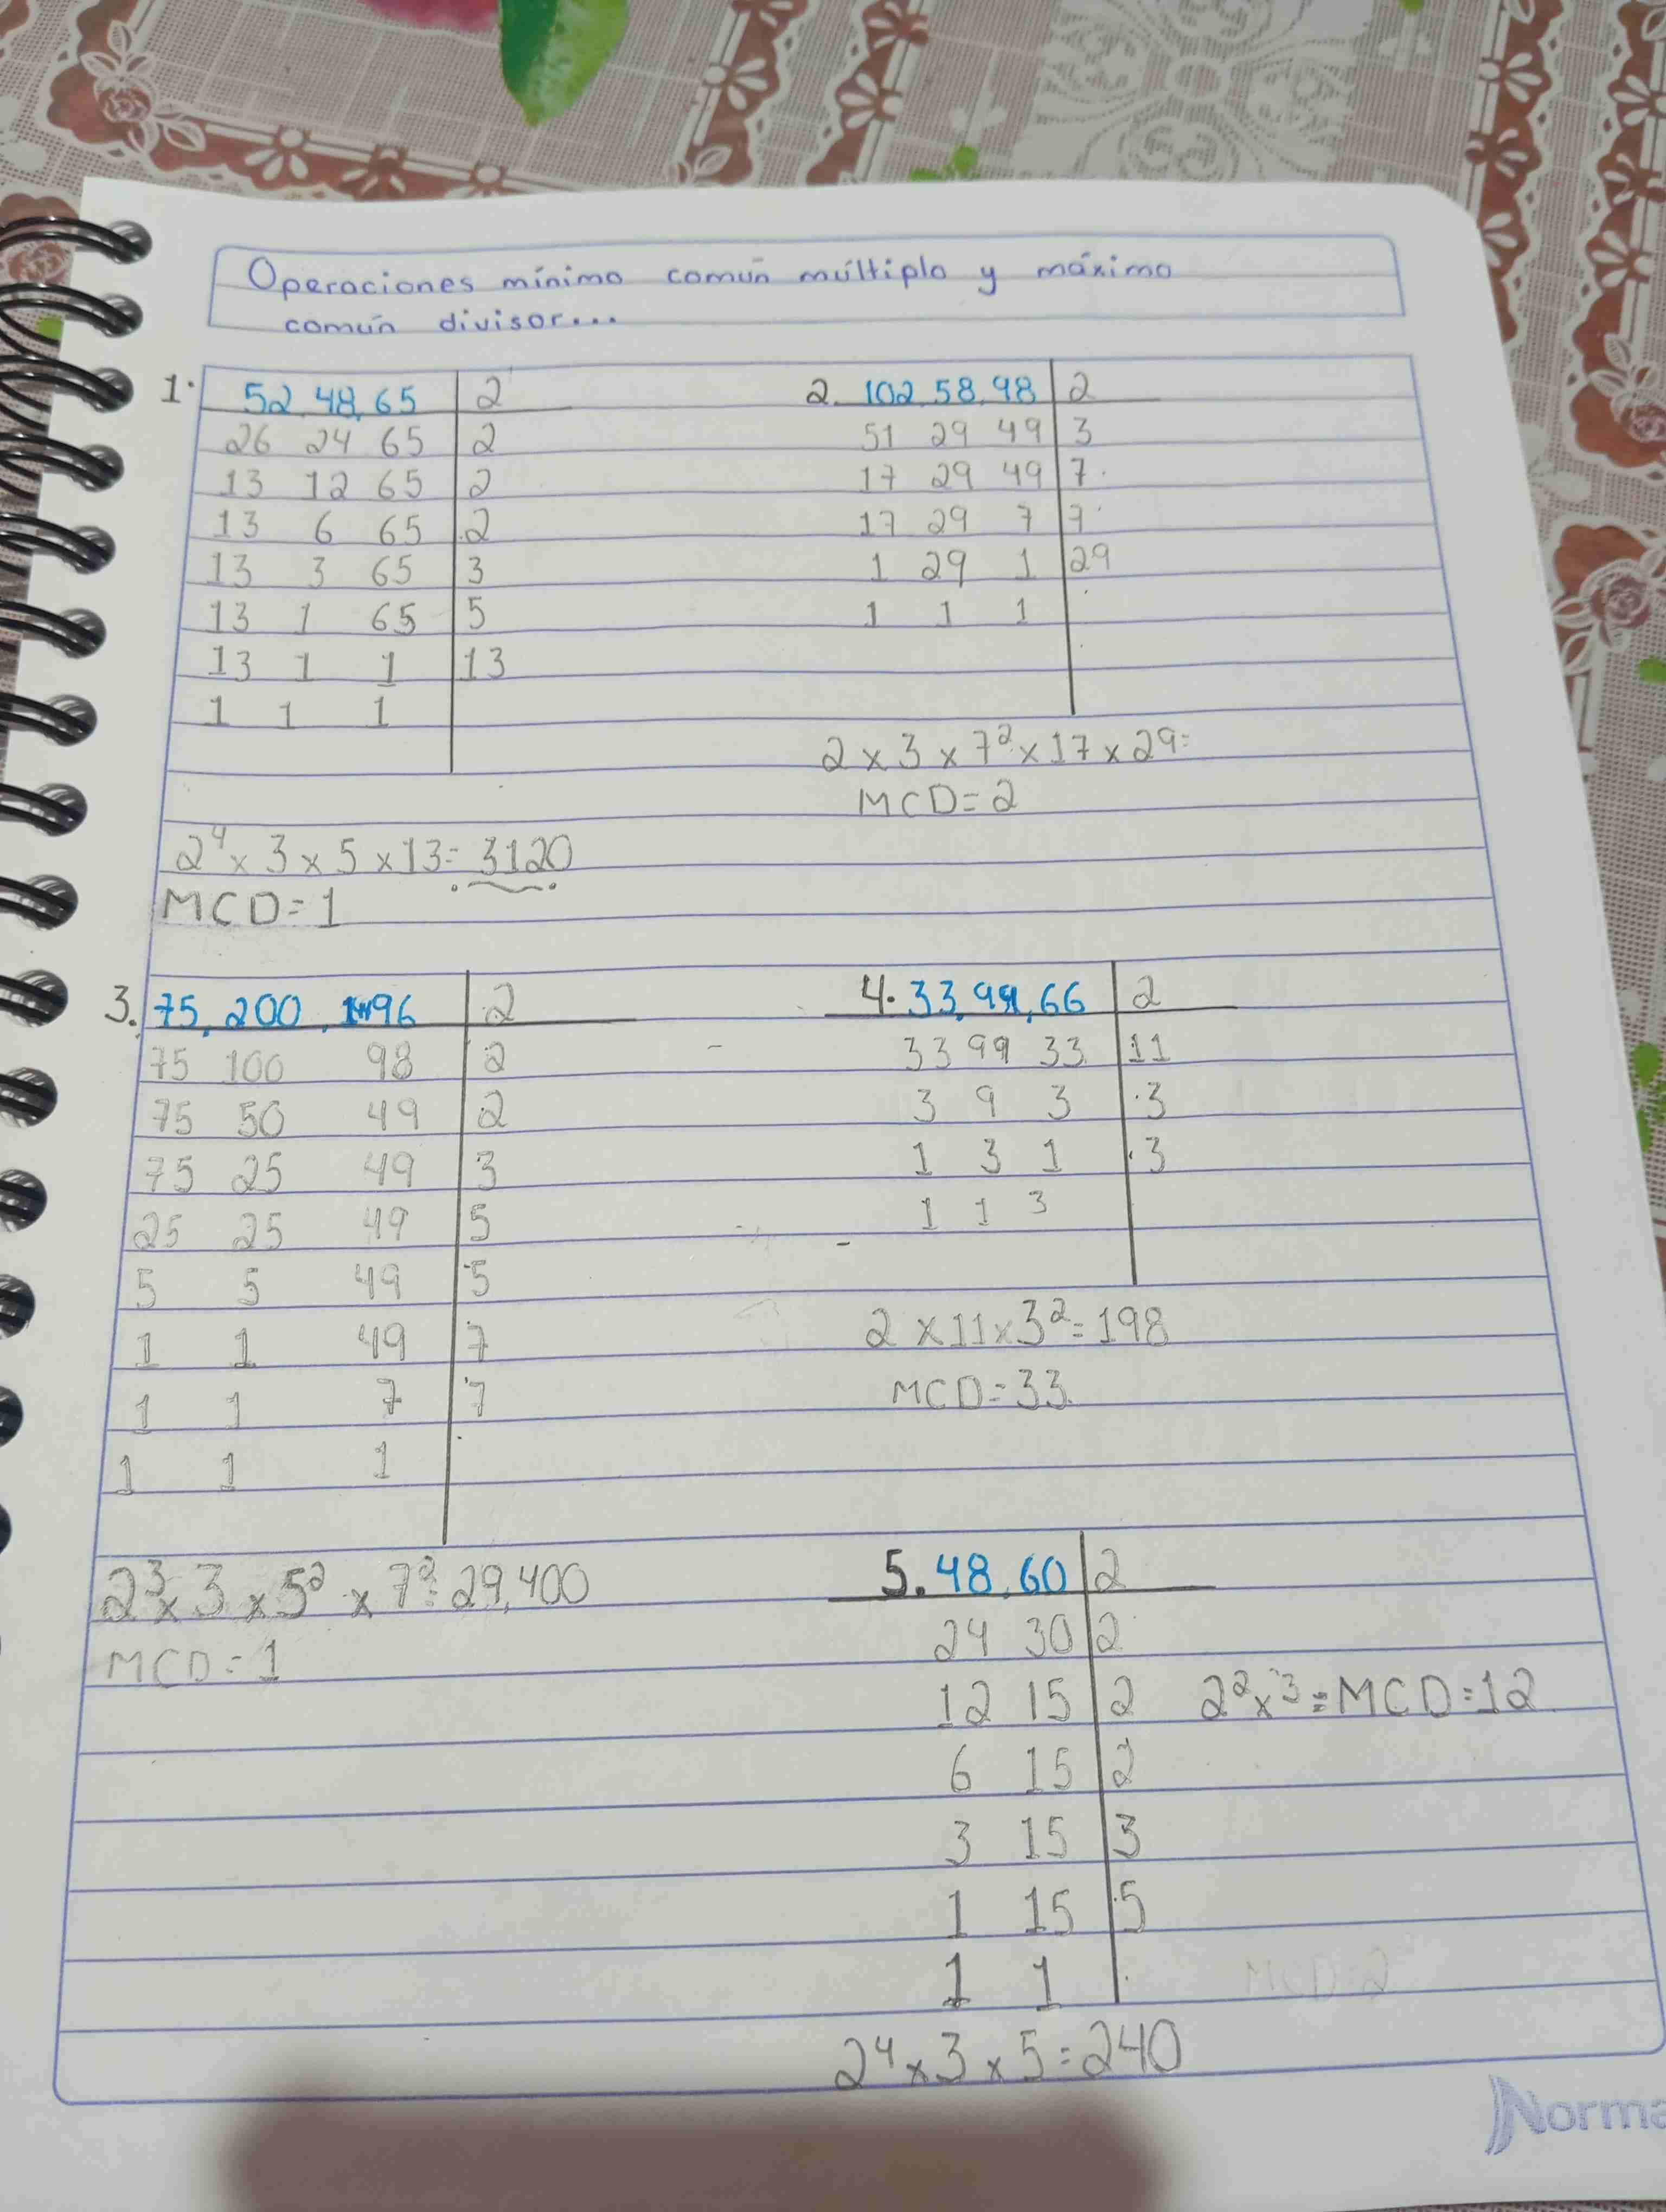 Operaciones mínimo común múltiplo y máximo
común divisor...
1. 52, 48, 65 | 2
26 24 65 | 2
13 12 65 | 2
13 6 65 | 2
13 3 65 | 3
13 1 65 | 5
13 1 1 | 13
1 1 1
2⁴ x 3 x 5 x 13 = 3120
MCD = 1
2. 102, 58, 98 | 2
51 29 49 | 3
17 29 49 | 7
17 29 7 | 7
1 29 1 | 29
1 1 1
2 x 3 x 7² x 17 x 29 =
MCD = 2
3. 75, 200, 196 | 2
75 100 98 | 2
75 50 49 | 2
75 25 49 | 3
25 25 49 | 5
5 5 49 | 5
1 1 49 | 7
1 1 7 | 7
1 1 1
2³ x 3 x 5² x 7² = 29,400
MCD = 1
4. 33, 99, 66 | 2
33 99 33 | 11
3 9 3 | 3
1 3 1 | 3
1 1 3
2 x 11 x 3² = 198
MCD = 33
5. 48, 60 | 2
24 30 | 2
12 15 | 2 2² x 3 = MCD = 12
6 15 | 2
3 15 | 3
1 15 | 5
1 1
2⁴ x 3 x 5 = 240
Norma